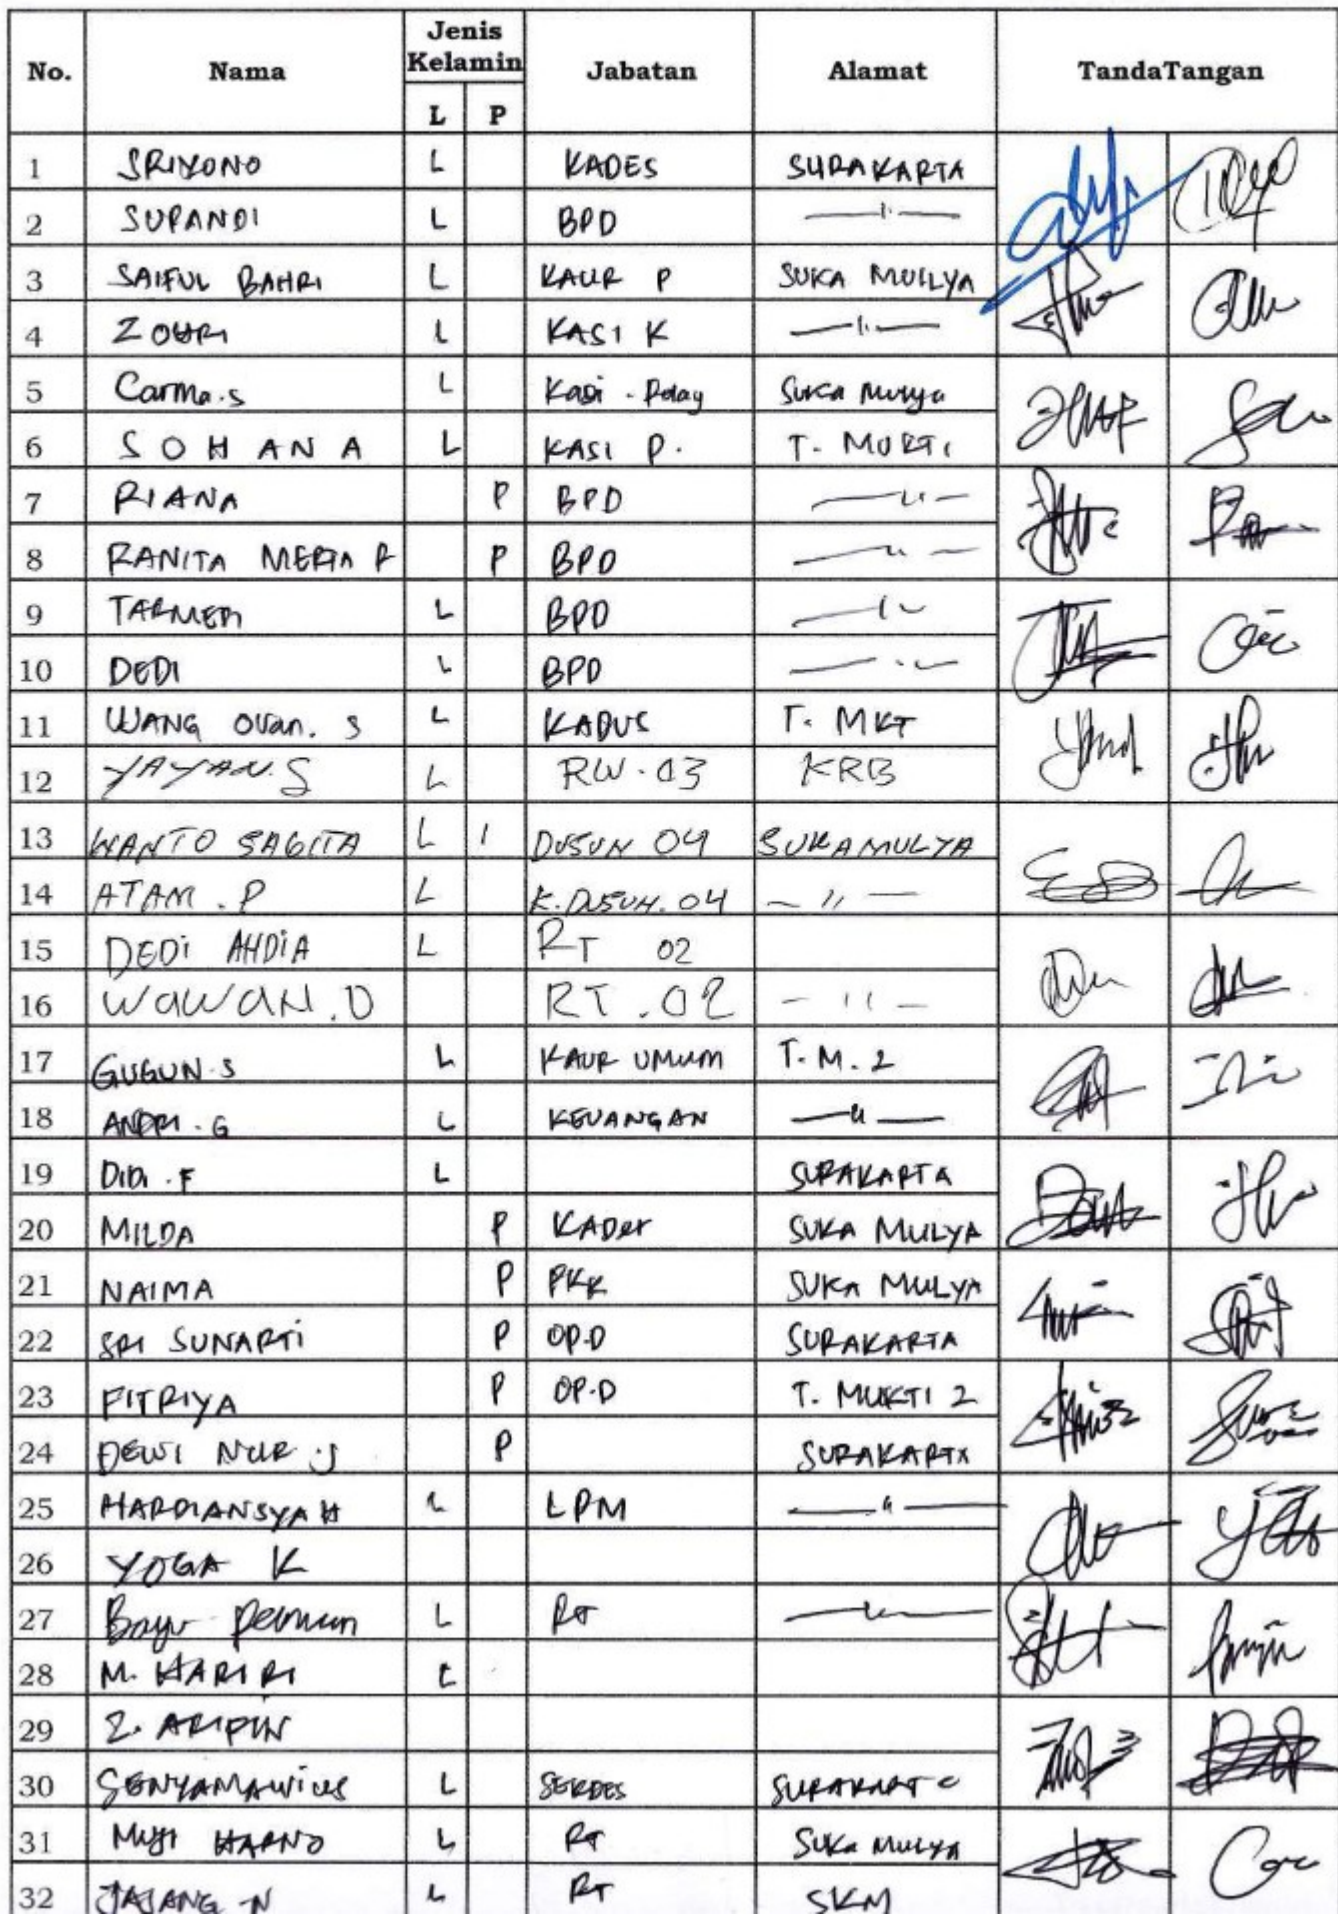 No. Nama Jenis Kelamin Jabatan Alamat TandaTangan
L P
1 SRIYONO L KADES SURAKARTA
2 SUPANDI L BPD —ıı—
3 SAIFUL BAHRI L KAUR P SUKA MULYA
4 ZOHRI L KASI K —ıı—
5 Carma.s L Kasi - Suka Mulya
6 SOHANA L KASI P. T. MUKTI
7 RIANA P BPD —ıı—
8 RANITA MERTA P P BPD —ıı—
9 TARMEDI L BPD —ıı—
10 DEDI L BPD —ıı—
11 WANG S L KADUS T. MKT
12 YAYAN.S L RW.03 KRB
13 WANTO SAGITA L DUSUN 04 SUKAMULYA
14 ATAM.P L K.DUSUN.04 —ıı—
15 DEDI AHDIA L RT 02
16 WAWAN.D RT.02 —ıı—
17 GUGUN.S L KAUR UMUM T.M.2
18 ANDRI.G L KEUANGAN —ıı—
19 DIDI.F L SURAKARTA
20 MILDA P KADER SUKA MULYA
21 NAIMA P PKK SUKA MULYA
22 SRI SUNARTI P OP.D SURAKARTA
23 FITRIYA P OP.D T. MUKTI 2
24 DEWI NUR.J P SURAKARTA
25 HARDIANSYAH L LPM —ıı—
26 YOGA K
27 Bayu L RT —ıı—
28 M. HARIRI L
29 Z. ARIPIN
30 L SEKDES SURAKARTA
31 MUJI HARNO L RT SUKA MULYA
32 JAJANG.N L RT SKM